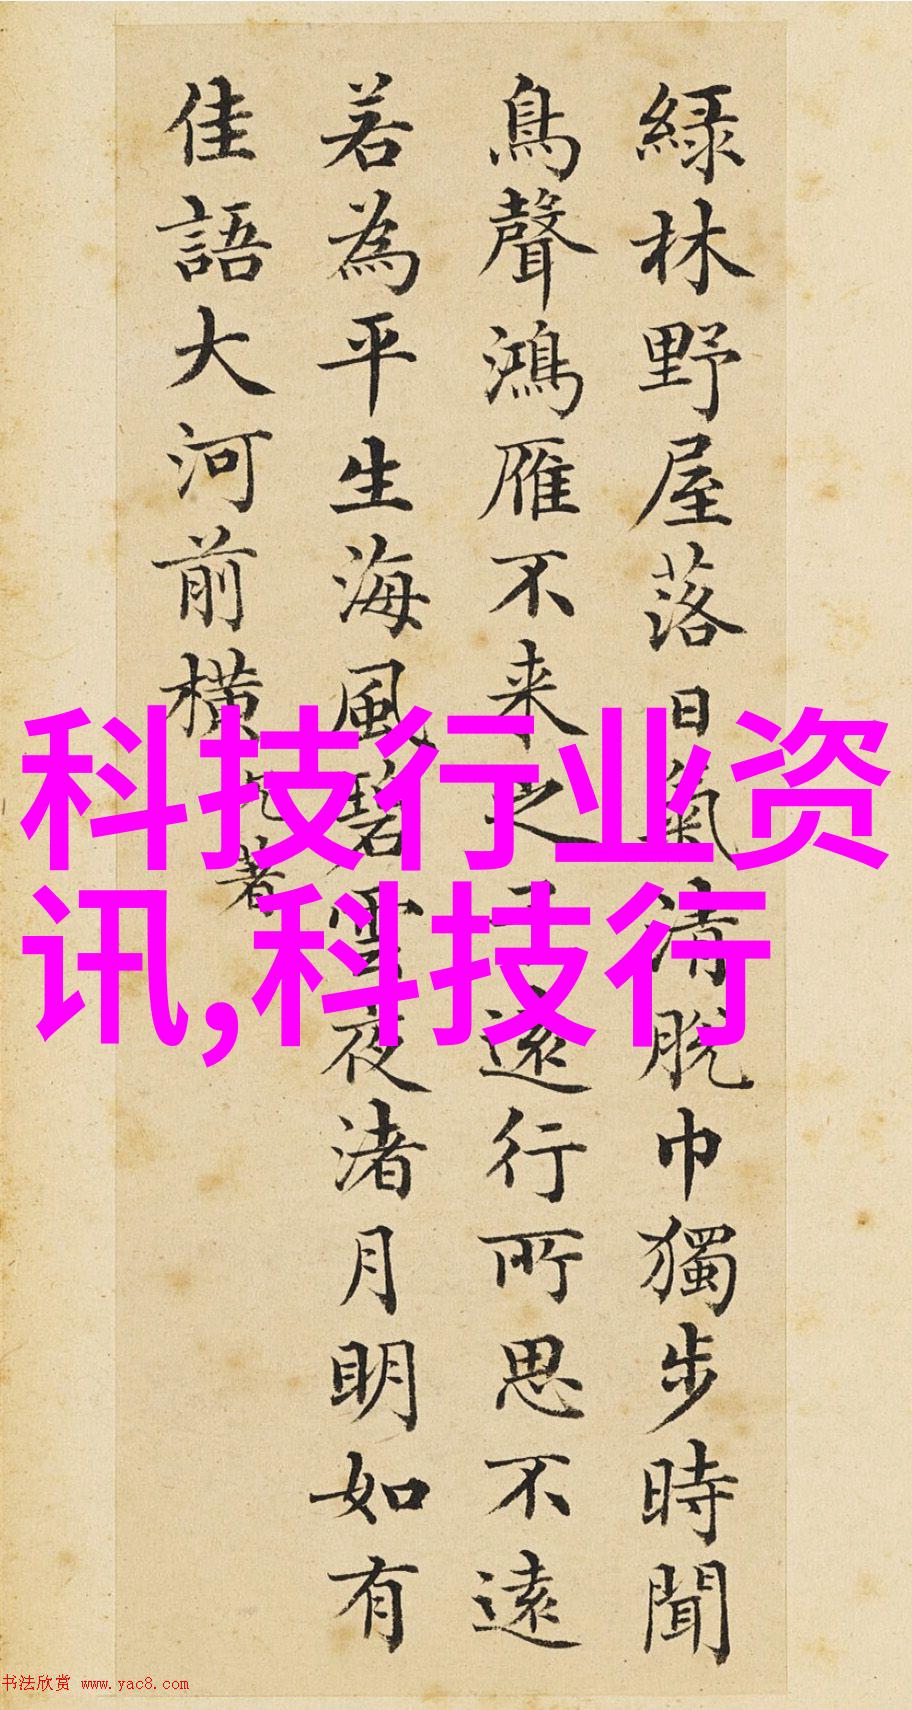 綠林野屋落日氣清脫巾獨步時聞
鳥聲鴻雁不来之子遠行所思不遠
若為平生海風碧雲夜渚月明如有
佳語大河前橫
著
科技行业资
讯,科技行
书法欣赏 www.yac8.com